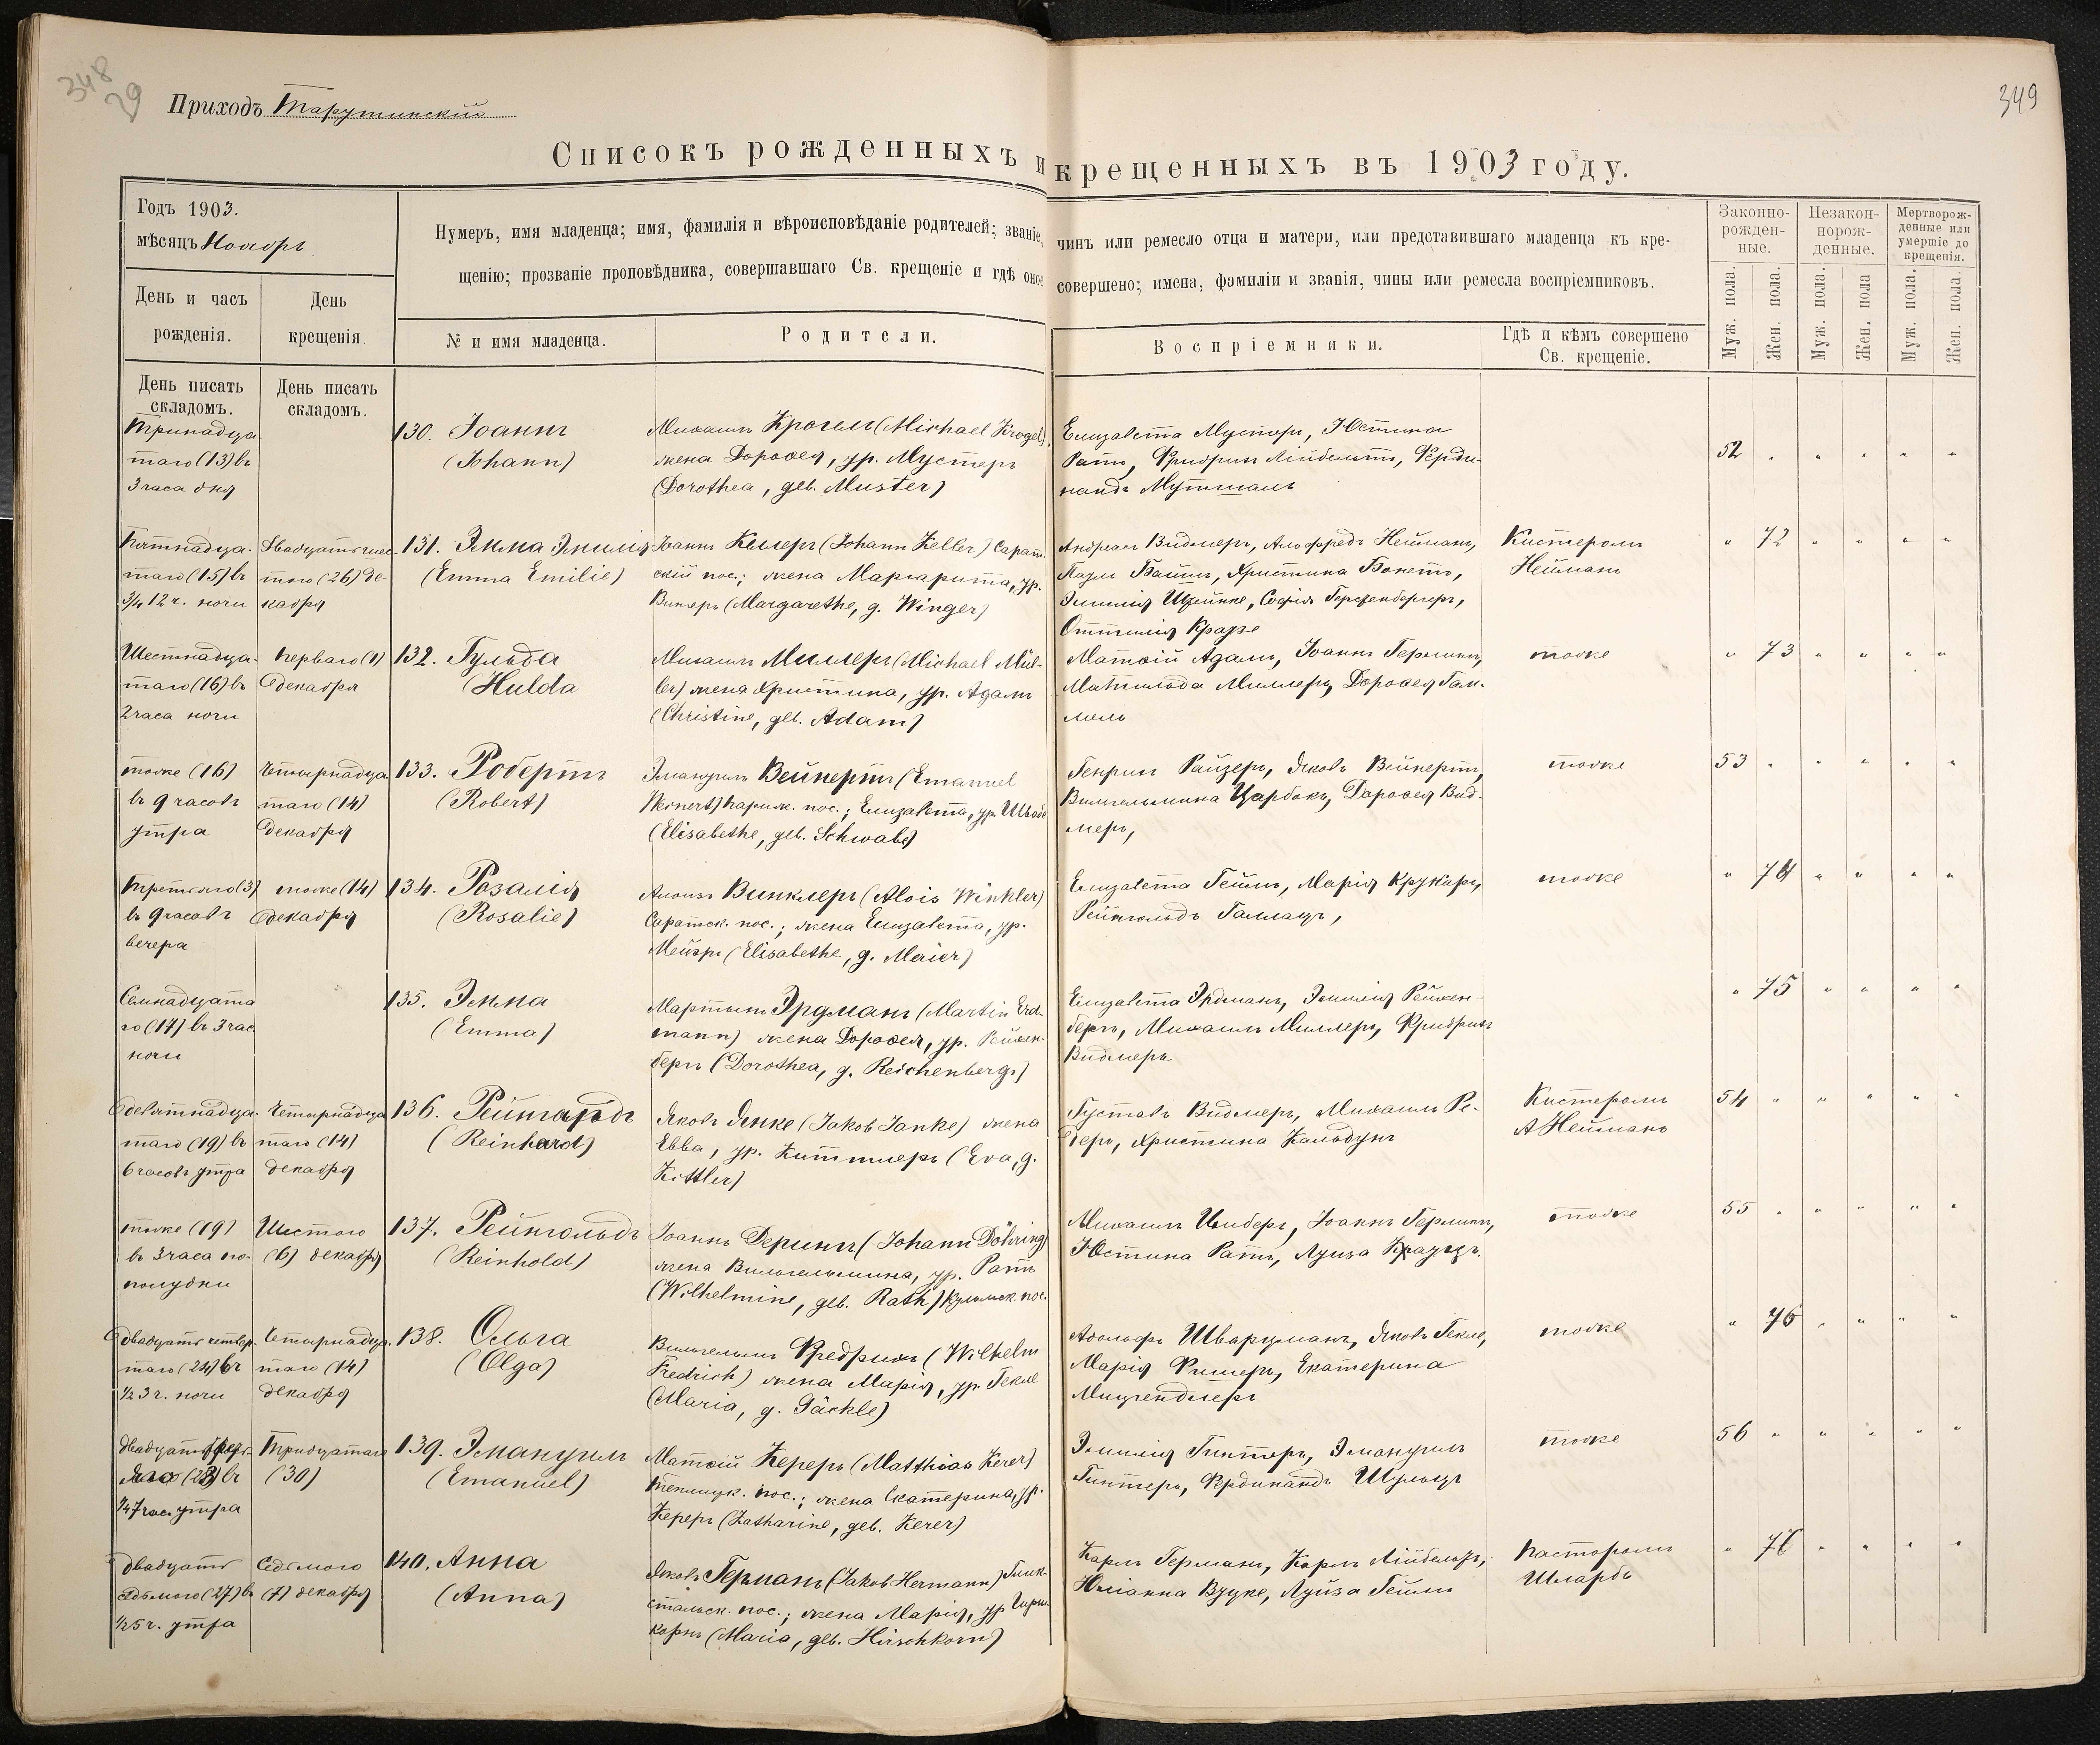 348
29
349
Приходъ Тарутинскій
Списокъ рожденныхъ и крещенныхъ въ 1903 году.
Годъ 1903.
мѣсяцъ Ноябрь
День и часъ
рожденія.
День
крещенія.
Нумеръ, имя младенца; имя, фамилія и вѣроисповѣданіе родителей; званіе, чинъ или ремесло отца и матери, или представившаго младенца къ кре-
щенію; прозваніе проповѣдника, совершавшаго Св. крещеніе и гдѣ оное совершено; имена, фамиліи и званія, чины или ремесла воспріемниковъ.
№ и имя младенца.
Родители.
Воспріемники.
Гдѣ и кѣмъ совершено
Св. крещеніе.
Законно-
рожден-
ные.
Незакон-
норож-
денные.
Мертворож-
денные или
умершіе до
крещенія.
Муж. пола.
Жен. пола.
Муж. пола.
Жен. пола
Муж. пола.
Жен. пола.
День писать
складомъ.
День писать
складомъ.
Тринадца
таго (13) въ
3 часа дня
130. Іоаннъ
(Johann)
Михаилъ Крогель (Michael Krogel)
жена Доровея, ур. Мустеръ
(Dorothea, geb. Muster)
Елизавета Мустеръ, Юстина
Ратъ, Фридрихъ Лейбельтъ, Ферди-
нандъ Мутшаль
52 " " " " "
Пятнадца-
таго (15) въ
3/4 12 ч. ночи
Двадцать шес-
таго (26) де-
кабря
131. Эмма Эмилія
(Emma Emilie)
Іоаннъ Келлеръ (Johann Keller) Сарат-
скій пос.; жена Маргарита, ур.
Вингеръ (Margarethe, g. Winger)
Андреасъ Видмеръ, Альфредъ Нейманъ,
Христина Бонетъ,
Эмилія Софія
Оттилія Краузе
Кистеромъ
Нейманъ
" 72 " " " "
Шестнадца-
таго (16) въ
2 часа ночи
Перваго (1)
декабря
132. Гульда
(Hulda
Михаилъ Миллеръ (Michael Mül-
ler) жена Христина, ур. Адамъ
(Christine, geb. Adam)
Матвій Адамъ, Іоаннъ
Матильда Миллеръ, Доровея Гам-
мель
тоже
" 73 " " " "
тоже (16)
въ 9 часовъ
утра
Четырнадца
таго (14)
декабря
133. Робертъ
(Robert)
Эмануилъ Вейнертъ (Emanuel
Weinert) Париж. пос.; Елизавета, ур. Швабе
(Elisabethe, geb. Schwabe)
Генрихъ Райзеръ, Яковъ Вейнертъ,
Вильгельмина Царбокъ, Доровея Вид-
меръ,
тоже
53 " " " " "
Третьяго (3)
въ 9 часовъ
вечера
тоже (14)
декабря
134. Розалія
(Rosalie)
Алоизъ Винклеръ (Alois Winkler)
Саратск. пос.; жена Елизавета, ур.
Мейэръ (Elisabethe, g. Maier)
Елизавета Гейнъ, Марія Крукаръ,
Рейнгольдъ
тоже
" 74 " " " "
Семнадцата
го (17) въ 3 час.
ночи
135. Эмма
(Emma)
Мартынъ Эрдманъ (Martin Erd-
mann) жена Доровея, ур. Рейхен-
бергъ (Dorothea, g. Reichenberg.)
Елизавета Эрдманъ, Эмилія Рейхен-
бергъ, Михаилъ Миллеръ, Фридрихъ
Видмеръ
" 75 " " " "
Девятнадца-
таго (19) въ
6 часовъ утра
Четырнадца
таго (14)
декабря
136. Рейнгардъ
(Reinhard)
Яковъ Янке (Jakob Janke) жена
Евва, ур. Киттлеръ (Eva, g.
Kittler)
Густавъ Видмеръ, Михаилъ Ре-
деръ, Христина Кальдунъ
Кистеромъ
А Нейманъ
54 " " " " "
тоже (19)
въ 3 часа по-
полудни
Шестого
(6) декабря
137. Рейнгольдъ
(Reinhold)
Іоаннъ Дерингъ (Johann Döhring)
жена Вильгельмина, ур. Ратъ
(Wilhelmine, geb. Rath) Кульмск. пос.
Михаилъ Іоаннъ
Юстина Ратъ, Луиза
тоже
55 " " " " "
Двадцать четвер-
таго (24) въ
1/2 3 ч. ночи
Четырнадца-
таго (14)
декабря
138. Ольга
(Olga)
Вильгельмъ Фредрихъ (Wilhelm
Fredrich) жена Марія, ур. Гекле
(Maria, g. Jäckle)
Адольфъ Шварцманъ, Яковъ Гекле,
Марія Фишеръ, Екатерина
Мицгендлеръ
тоже
" 76 " " " "
Двадцать
въ
1/4 7 час. утра
Тридцатаго
(30)
139. Эмануилъ
(Emanuel)
Матвій Кереръ (Matthias Kerer)
Теплицк. пос.; жена Екатерина, ур.
Кереръ (Katharine, geb. Kerer)
Эмилія Гинтеръ, Эмануилъ
Гинтеръ, Фердинандъ Шульцъ
тоже
56 " " " " "
Двадцать
седьмого (27) въ
1/2 5 ч. утра
Седьмого
(7) декабря
140. Анна
(Anna)
Яковъ Германъ (Jakob Hermann) Глюк-
стальск. пос.; жена Марія, ур Гирш-
корнъ (Maria, geb. Hirschkorn)
Карлъ Германъ, Карлъ
Юліанна Вуцке, Луиза Гейнъ
Пасторомъ
Шларъ
" 77 " " " "